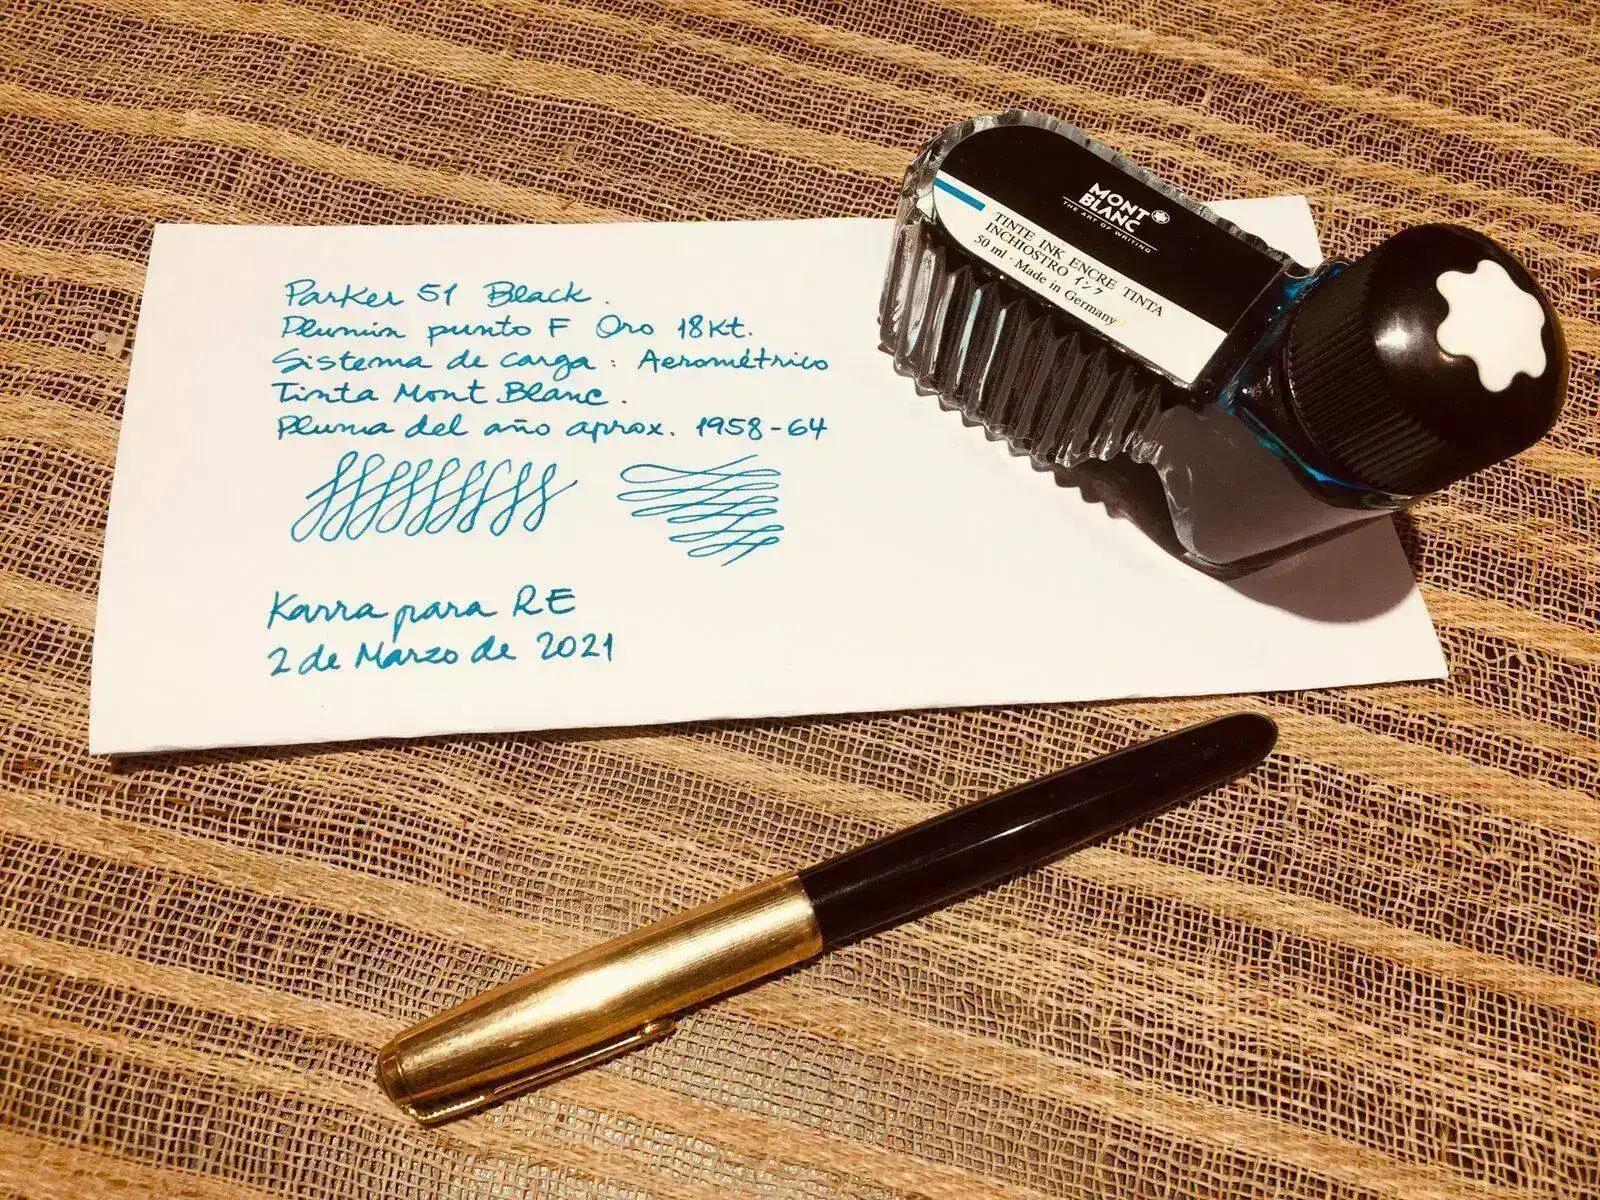 Parker 51 Black.
Plumin punto F Oro 18Kt.
Sistema de carga: Aerométrico
Tinta Mont Blanc.
Pluma del año aprox. 1958-64
Karra para RE
2 de Marzo de 2021
MONT
BLANC
THE ART OF WRITING
TINTE INK ENCRE TINTA
INCHIOSTRO インク
50 ml · Made in Germany